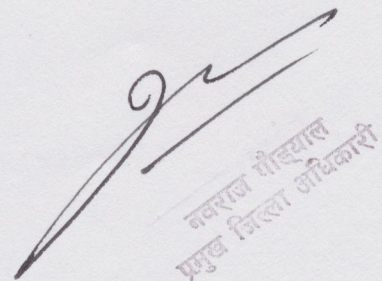 नवराज पौड्याल
प्रमुख जिल्ला अधिकारी